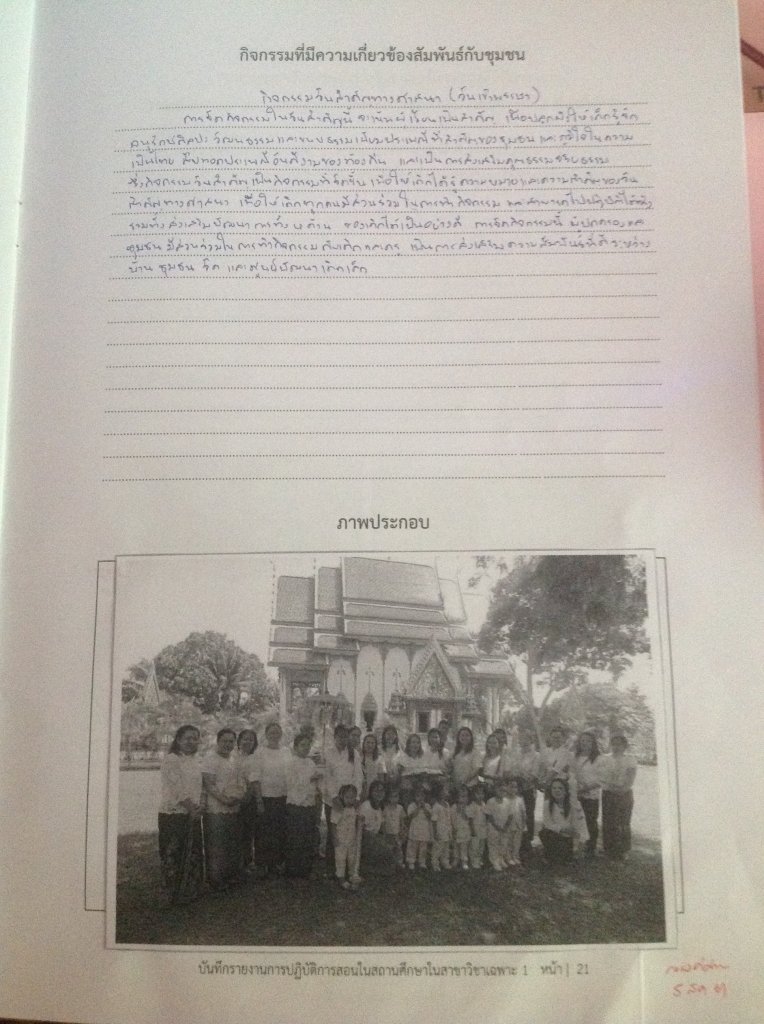 กิจกรรมที่มีความเกี่ยวข้องสัมพันธ์กับชุมชน
กิจกรรมวันสำคัญทางศาสนา (วันเข้าพรรษา)
การจัดกิจกรรมในวันสำคัญนี้ จะเน้นผู้เรียนเป็นสำคัญ เพื่อปลูกฝังให้เด็กรู้จัก
อนุรักษ์ศิลปะ วัฒนธรรมและขนบธรรมเนียมประเพณีที่สำคัญของชุมชน และภูมิใจในความ
เป็นไทย สืบทอดประเพณีอันดีงามของท้องถิ่น และเป็นการส่งเสริมคุณธรรมจริยธรรม
ซึ่งกิจกรรมวันสำคัญเป็นกิจกรรมที่จัดขึ้น เพื่อให้เด็กได้รู้ความหมายและความสำคัญของวัน
สำคัญทางศาสนา เพื่อให้เด็กทุกคนมีส่วนร่วมในการทำกิจกรรม และสามารถ
รวมทั้งส่งเสริมพัฒนาการทั้ง ๔ ด้าน ของเด็กได้เป็นอย่างดี การจัดกิจกรรมนี้ ผู้ปกครองและ
ชุมชน มีส่วนร่วมในการทำกิจกรรม กับเด็กและครู เป็นการส่งเสริมความสัมพันธ์ที่ดี ระหว่าง
บ้าน ชุมชน วัด และศูนย์พัฒนาเด็กเล็ก
ภาพประกอบ
บันทึกรายงานการปฏิบัติการสอนในสถานศึกษาในสาขาวิชาเฉพาะ 1 หน้า | 21